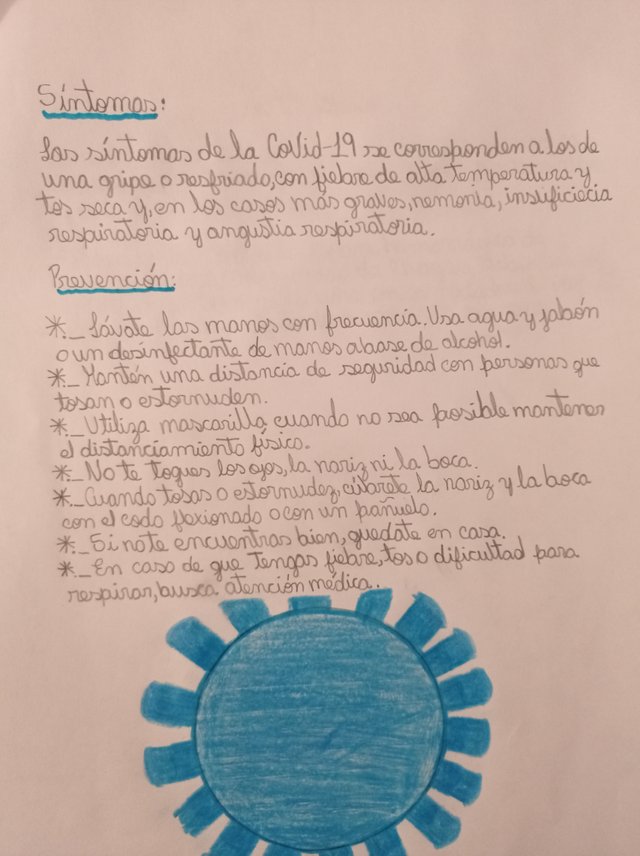 Síntomas:
Los síntomas de la Covid-19 se corresponden a los de
una gripe o resfriado, con fiebre de alta temperatura y
tos seca y, en los casos más graves, nemonia, insuficiecia
respiratoria y angustia respiratoria.
Prevención:
*._ Lávate las manos con frecuencia. Usa agua y jabón
o un desinfectante de manos abase de alcohol.
*._ Mantén una distancia de seguridad con personas que
tosan o estornuden.
*._ Utiliza mascarilla, cuando no sea posible mantener
el distanciamiento físico.
*._ No te toques los ojos, la nariz ni la boca.
*._ Cuando tosas o estornudez, cúbrete la nariz y la boca
con el codo flexionado o con un pañuelo.
*._ Si no te encuentras bien, quedate en casa.
*._ En caso de que tengas fiebre, tos o dificultad para
respirar, busca atención médica.